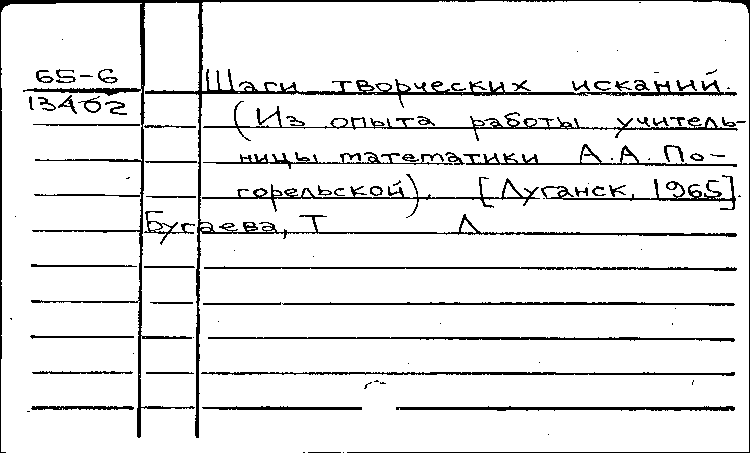 65-6 Шаги творческих исканий.
13402 (Из опыта работы учитель-
ницы математики А.А. По-
горельской). [Луганск, 1965].
Бугаева, Т Л